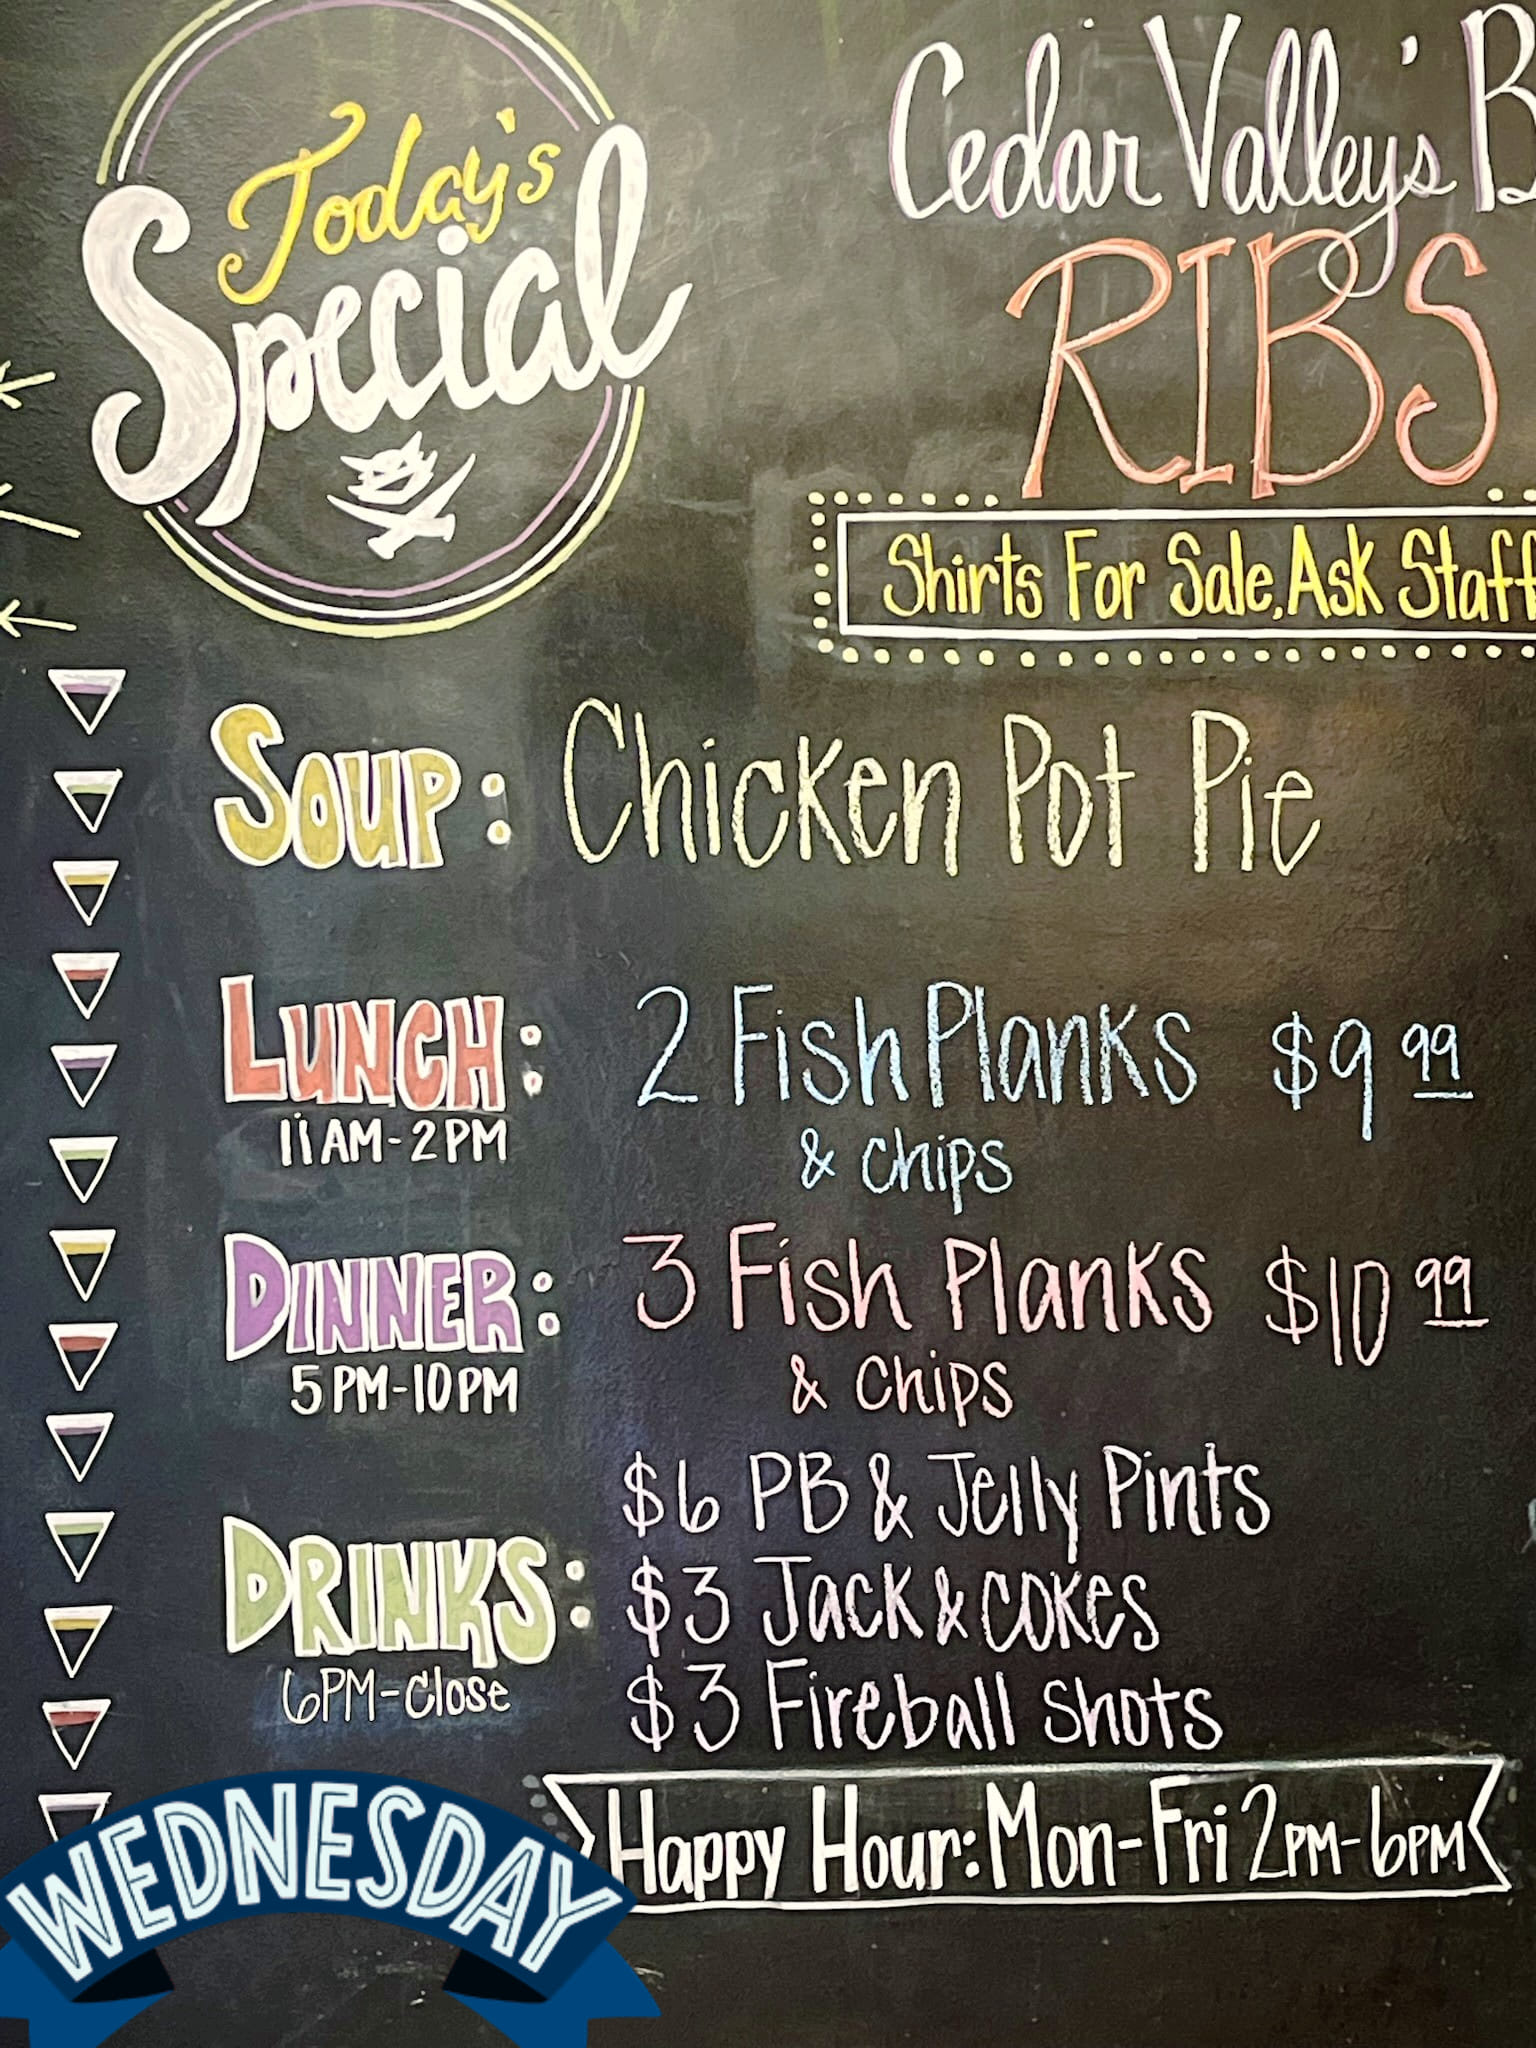 Today's
Special
Cedar Valley's
RIBS
Shirts For Sale, Ask Staff
SOUP: Chicken Pot Pie
LUNCH: 2 Fish Planks $9 99
11AM-2PM & Chips
DINNER: 3 Fish Planks $10 99
5PM-10PM & Chips
$6 PB & Jelly Pints
DRINKS: $3 Jack & COKES
6PM-Close $3 Fireball Shots
Happy Hour: Mon-Fri 2PM-6PM
WEDNESDAY